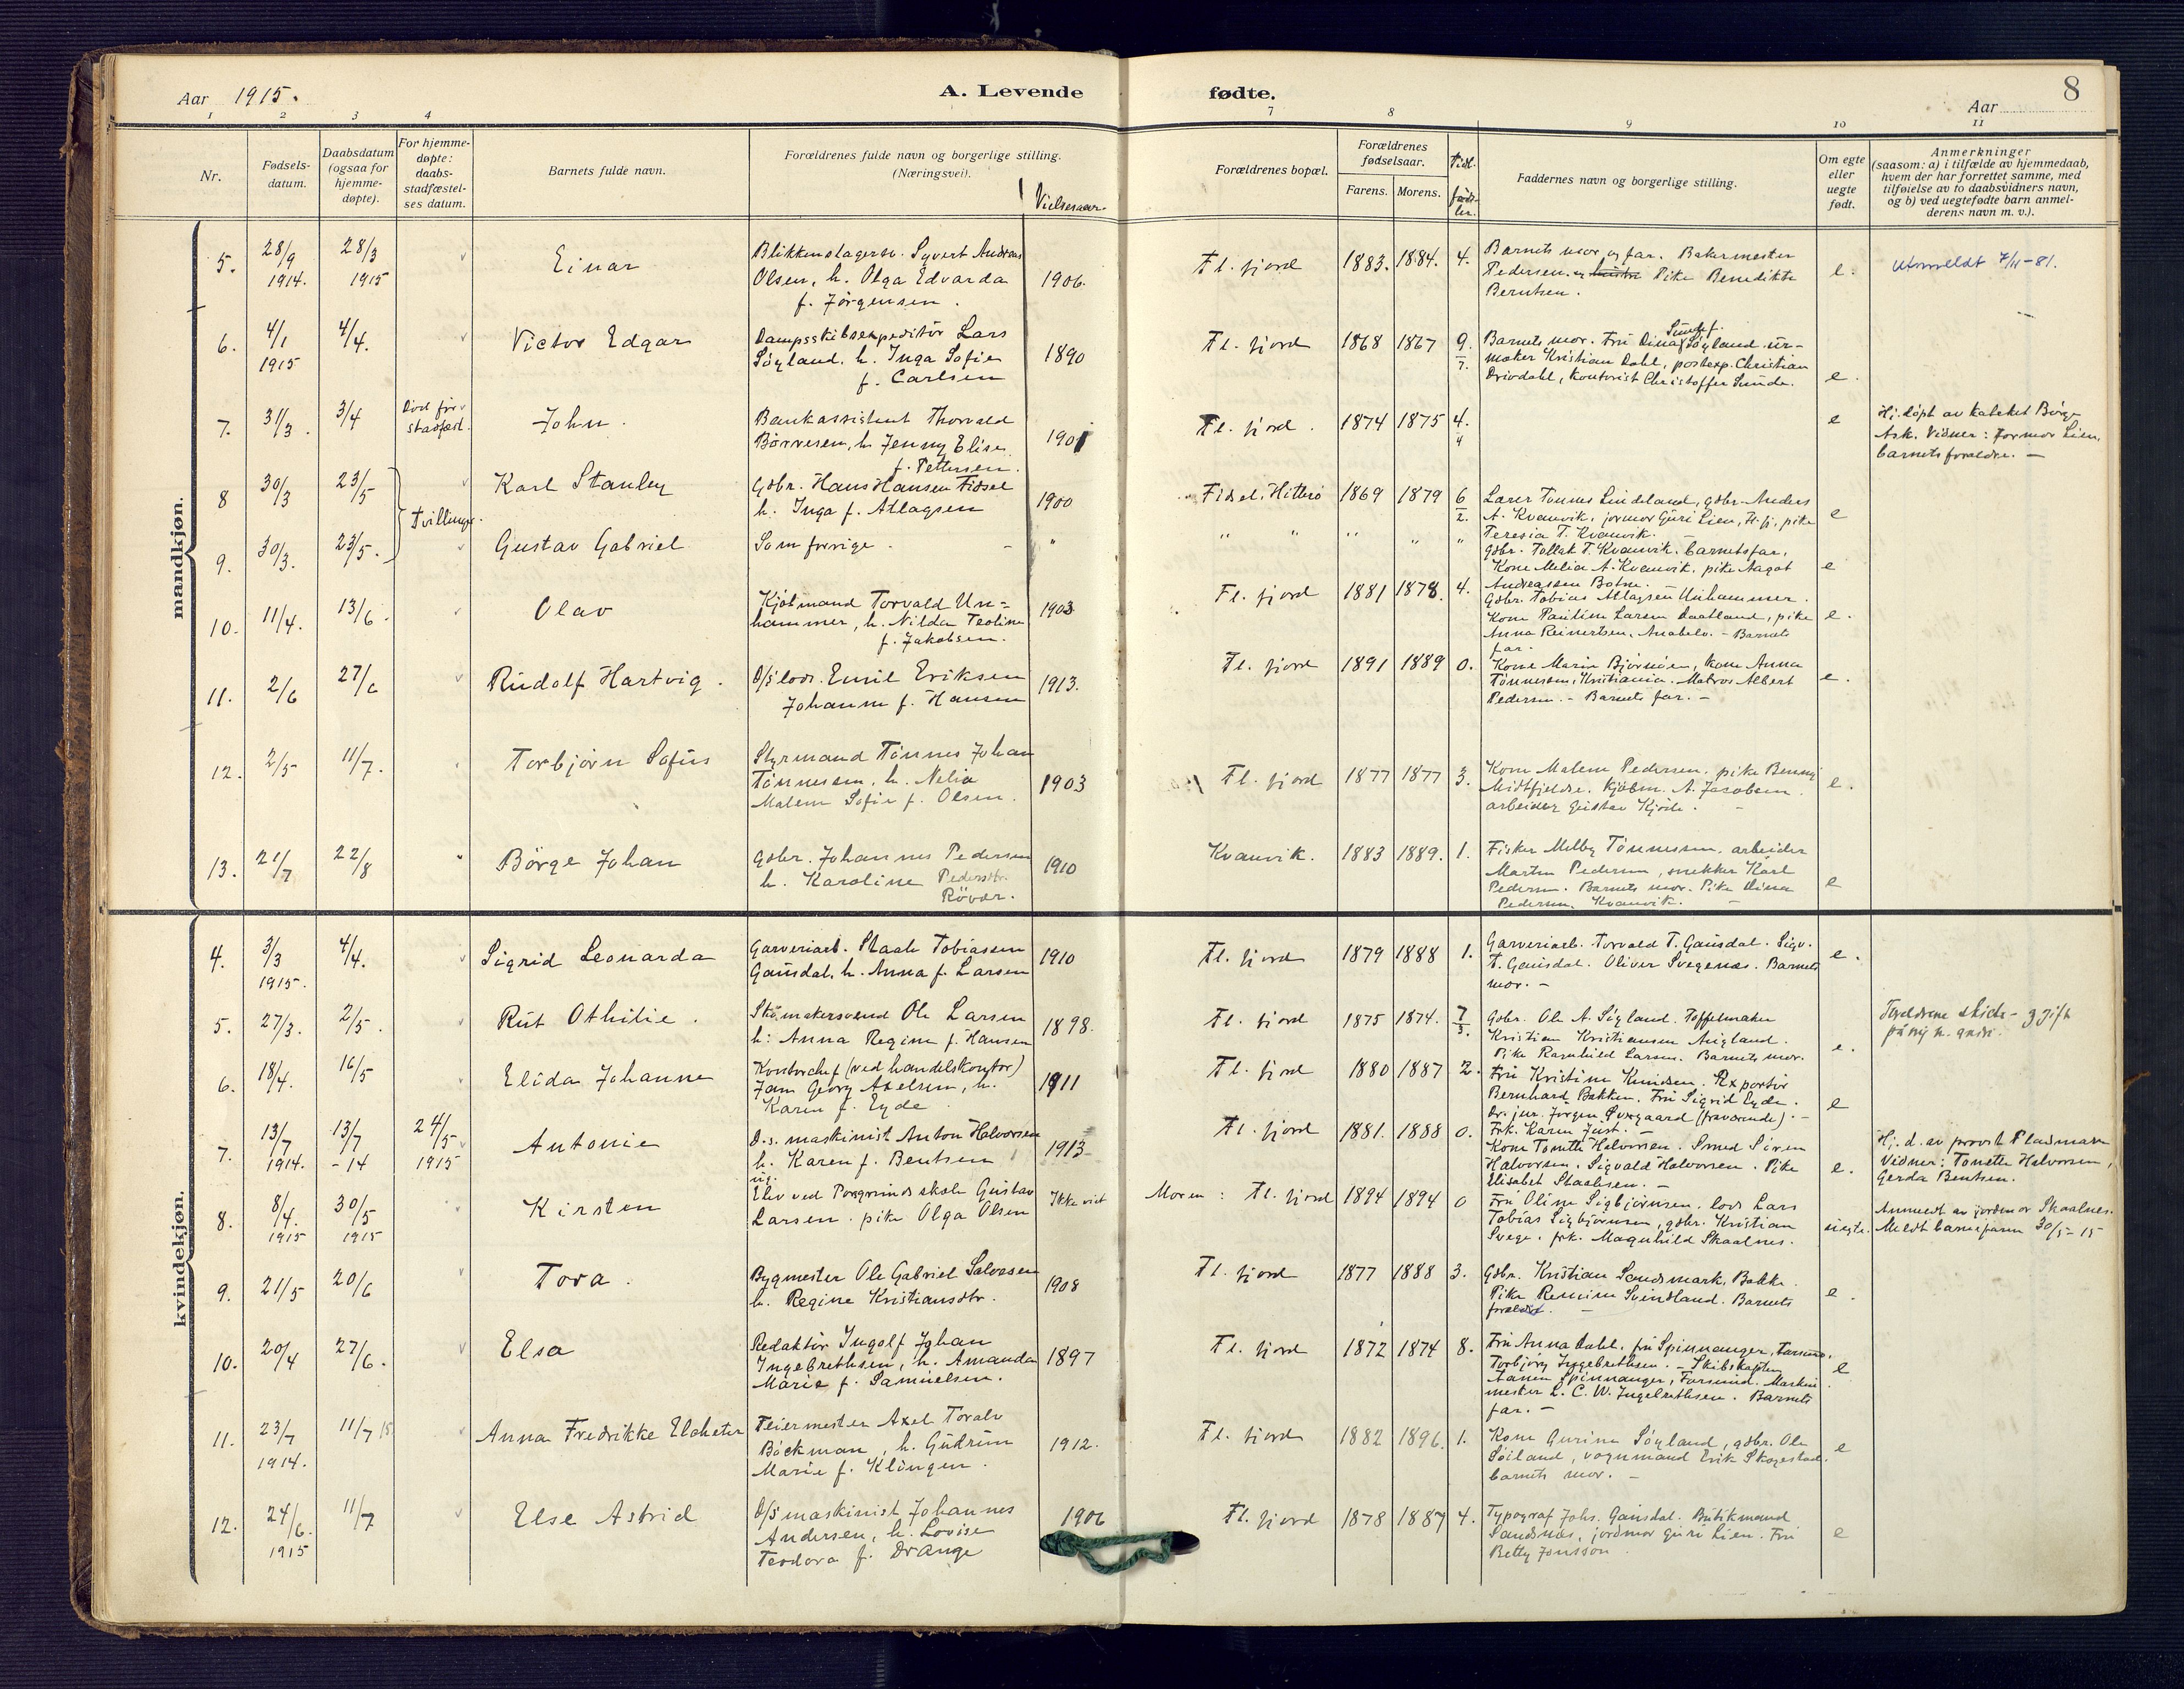 Aar 1915.
A. Levende
fødte.
8
Aar
1 2 3 4 7 8 9 10 11
Nr.
Fødsels-
datum.
Daabsdatum
(ogsaa for
hjemme-
døpte).
For hjemme-
døpte:
daabs-
stadfæstel-
ses datum.
Barnets fulde navn.
Forældrenes fulde navn og borgerlige stilling.
(Næringsvei).
Vielsesaar.
Forældrenes bopæl.
Forældrenes
fødselsaar.
Farens. Morens.
Tidl.
føds-
ler.
Faddernes navn og borgerlige stilling.
Om egte
eller
uegte
født.
Anmerkninger
(saasom: a) i tilfælde av hjemmedaab,
hvem der har forrettet samme, med
tilføielse av to daabsvidners navn,
og b) ved uegtefødte barn anmel-
derens navn m. v.).
mandkjøn.
5. 28/9 1914. 28/3 1915 Einar
Blikkenslagersv. Syvert Andreas
Olsen, h. Olga Edvarda
f. Jørgensen.
1906.
Fl. fjord 1883. 1884. 4.
Barnets mor og far. Bakermester
Pedersen og hustru Pike Benedikte
Berntsen.
e.
Utmeldt 7/11-81.
6. 4/1 1915 4/4. Victor Edgar
Dampsskibsexpeditør Lars
Søyland. h. Inga Sofie
f. Carlsen
1890
Fl. fjord 1868 1867 9/7.
Barnets mor. Fru Dina Søyland ur-
Sunde f.
maker Kristian Dahl, postexp. Christian
Drivdahl, kontorist Christoffer Sunde.
e.
7. 31/3. 3/4 Død før
stadfæst.
John.
Bankassistent Thorvald
Børresen, h. Jenny Elise
f. Pettersen.
1901
Fl. fjord. 1874 1875 4./4
e
Hj. døpt av kateket Børge
Ask. Vidner: Jormor Lien,
barnets forældre. -
8 30/3 23/5 Tvillinger.
Karl Stanley
Gbr. Hans Hansen Fidsel
h. Inga f. Atlagsen
1900
Fidsel, Hitterø 1869 1879 6/2.
Lærer Tønnes Lindeland, gbr. Anders
A. Kvanvik, jormor Guri Lien, Fl. fj, pike
Teresia T. Kvanvik.
e
9. 30/3. 23/5. Gustav Gabriel
Som forrige. - "
" " " " "
Gbr. Tollak T. Kvanvik. barnets far,
Kone Melia A. Kvanvik, pike Aagot
Andreassen Botne.
e
10. 11/4. 13/6. Olav
Kjøbmand Torvald Un=
hammer, h. Nilda Teoline
f. Jakobsen.
1903
Fl. fjord 1881 1878. 4.
Gbr. Tobias Atlagsen Unhammer.
Kone Pauline Larsen Daatland, pike
Anna Reinertsen, Anabelø. - Barnets
far.
e.
11. 2/6 27/6 Rudolf Hartvig.
D/s lods. Emil Eriksen
Johanne f. Hansen
1913.
Fl. fjord 1891 1889 0.
Kone Marie Bjørnøen, kone Anna
Tønnesen, Kristiania. Matros Albert
Pedersen. - Barnets far. -
e.
12. 2/5 11/7. Torbjørn Sofus
Styrmand Tønnes Johan
Tønnesen, h. Nelia
Malene Sofie f. Olsen.
1903
Fl. fjord 1877 1877 3.
Kone Malene Pedersen, pike Benny
Midtfjeldre. Kjøbm. A. Jacobsen.
arbeider Gustav Kjørle.
e.
13. 21/7 22/8 Børge Johan
Gbr. Johannes Pedersen
h. Karoline Pedersdtr.
Røvær.
1910
Kvanvik. 1883 1889. 1.
Fisker Melby Tønnesen, arbeider
Martin Pedersen, snekker Karl
Pedersen. Barnets mor. Pike Dina
Pedersen, Kvanvik.
e
kvindekjøn.
4. 3/3 1915. 4/4. Sigrid Leonarda
Garveriarb. Staale Tobiassen
Gausdal, h. Anna f. Larsen
1910
Fl. fjord 1879 1888 1.
Garveriarb. Torvald T. Gausdal. Sigv.
T. Gausdal. Oliver Svegenes. Barnets
mor. -
e.
5. 27/3. 2/5. Rut Othilie.
Skomakersvend Ole Larsen
h: Anna Regine f. Hansen
1898.
Fl. fjord 1875 1874. 7/3.
Gbr. Ole A. Sigland. Tøffelmaker
Kristian Kristiansen Augland.
Pike Ragnhild Larsen. Barnets mor.
e.
Forældrene skilte - gift
på ny m. andre.
6. 18/4. 16/5 Elida Johanne
Kontorchef (ved handelskontor)
Jam Georg Axelsen, h.
Karen f. Eyde
1911
Fl. fjord 1880 1887 2.
Fru Kristine Knudsen. Exportør
Bernhard Bakken. Fru Sigrid Eyde.
Dr. jur. Jørgen Øvergaard (fraværende). -
Frk. Karen Just. -
e
7. 13/7 1914. 13/7 -14 24/5 1915 Antonie
D.s. maskinist Anton Halvorsen
h. Karen f. Bentsen
1913
Fl. fjord 1881. 1888 0.
Kone Tonette Halvorsen. Smed Søren
Halvorsen. Sigvald Halvorsen. Pike
Elisabet Staalesen. -
e.
Hj. d. av provst Pladsmann
Vidner: Tonette Halvorsen,
Gerda Bentsen.
8. 8/4. 1915 30/5 1915 Kirsten
ug.
Elev ved Porsgrunds skole Gustav
Larsen. pike Olga Olsen
Ikke viet
Moren: Fl. fjord 1894 1894 0
Fru Oline Sigbjørnsen, lods Lars
Tobias Sigbjørnsen, gbr. Kristian
Svege, frk. Magnhild Skaalnes.
uegte.
Anmeldt av jordmor Skaalnes.
Meldt barnefaren 30/5-15
9. 21/5 20/6 Tora.
Bygmester Ole Gabriel Salvesen
h. Regine Kristiansdtr.
1908
Fl. fjord 1877 1888 3.
Gbr. Kristian Sandsmark, Bakke.
Pike Remine Svindland. Barnets
forældre. -
e.
10. 20/4 27/6. Elsa
Redaktør Ingolf Johan
Ingebrethsen, h. Amanda
Marie f. Samuelsen.
1897
Fl. fjord 1872 1874 8.
Fru Anna Dahl, fru Spinnanger, Farsund.
Torbjørg Ingebrethsen. - Skibskaptein
Aanen Spinnanger, Farsund. Maskin
mester L. C. W. Ingebrethsen. Barnets
far. -
e
11. 23/7 1914. 11/7 15 Anna Fredrikke
Feiermester Axel Toralv
Bøckman, h. Gudrun
Marie f. Klungen.
1912.
Fl. fjord 1882 1896. 1.
Kone Gurine Søyland, gbr. Ole
Søiland, vognmand Erik Skogestad.
barnets mor. -
e
12. 24/6. 1915 11/7 Else Astrid
D/s maskinist Johannes
Andersen, h. Lovise
Teodora f. Drange
1906
Fl. fjord 1878 1887 4.
Typograf Johs. Gausdal. Butikmand
Sandsnes, jordmor Guri Lien. Fru
Betty Jonsson.
e